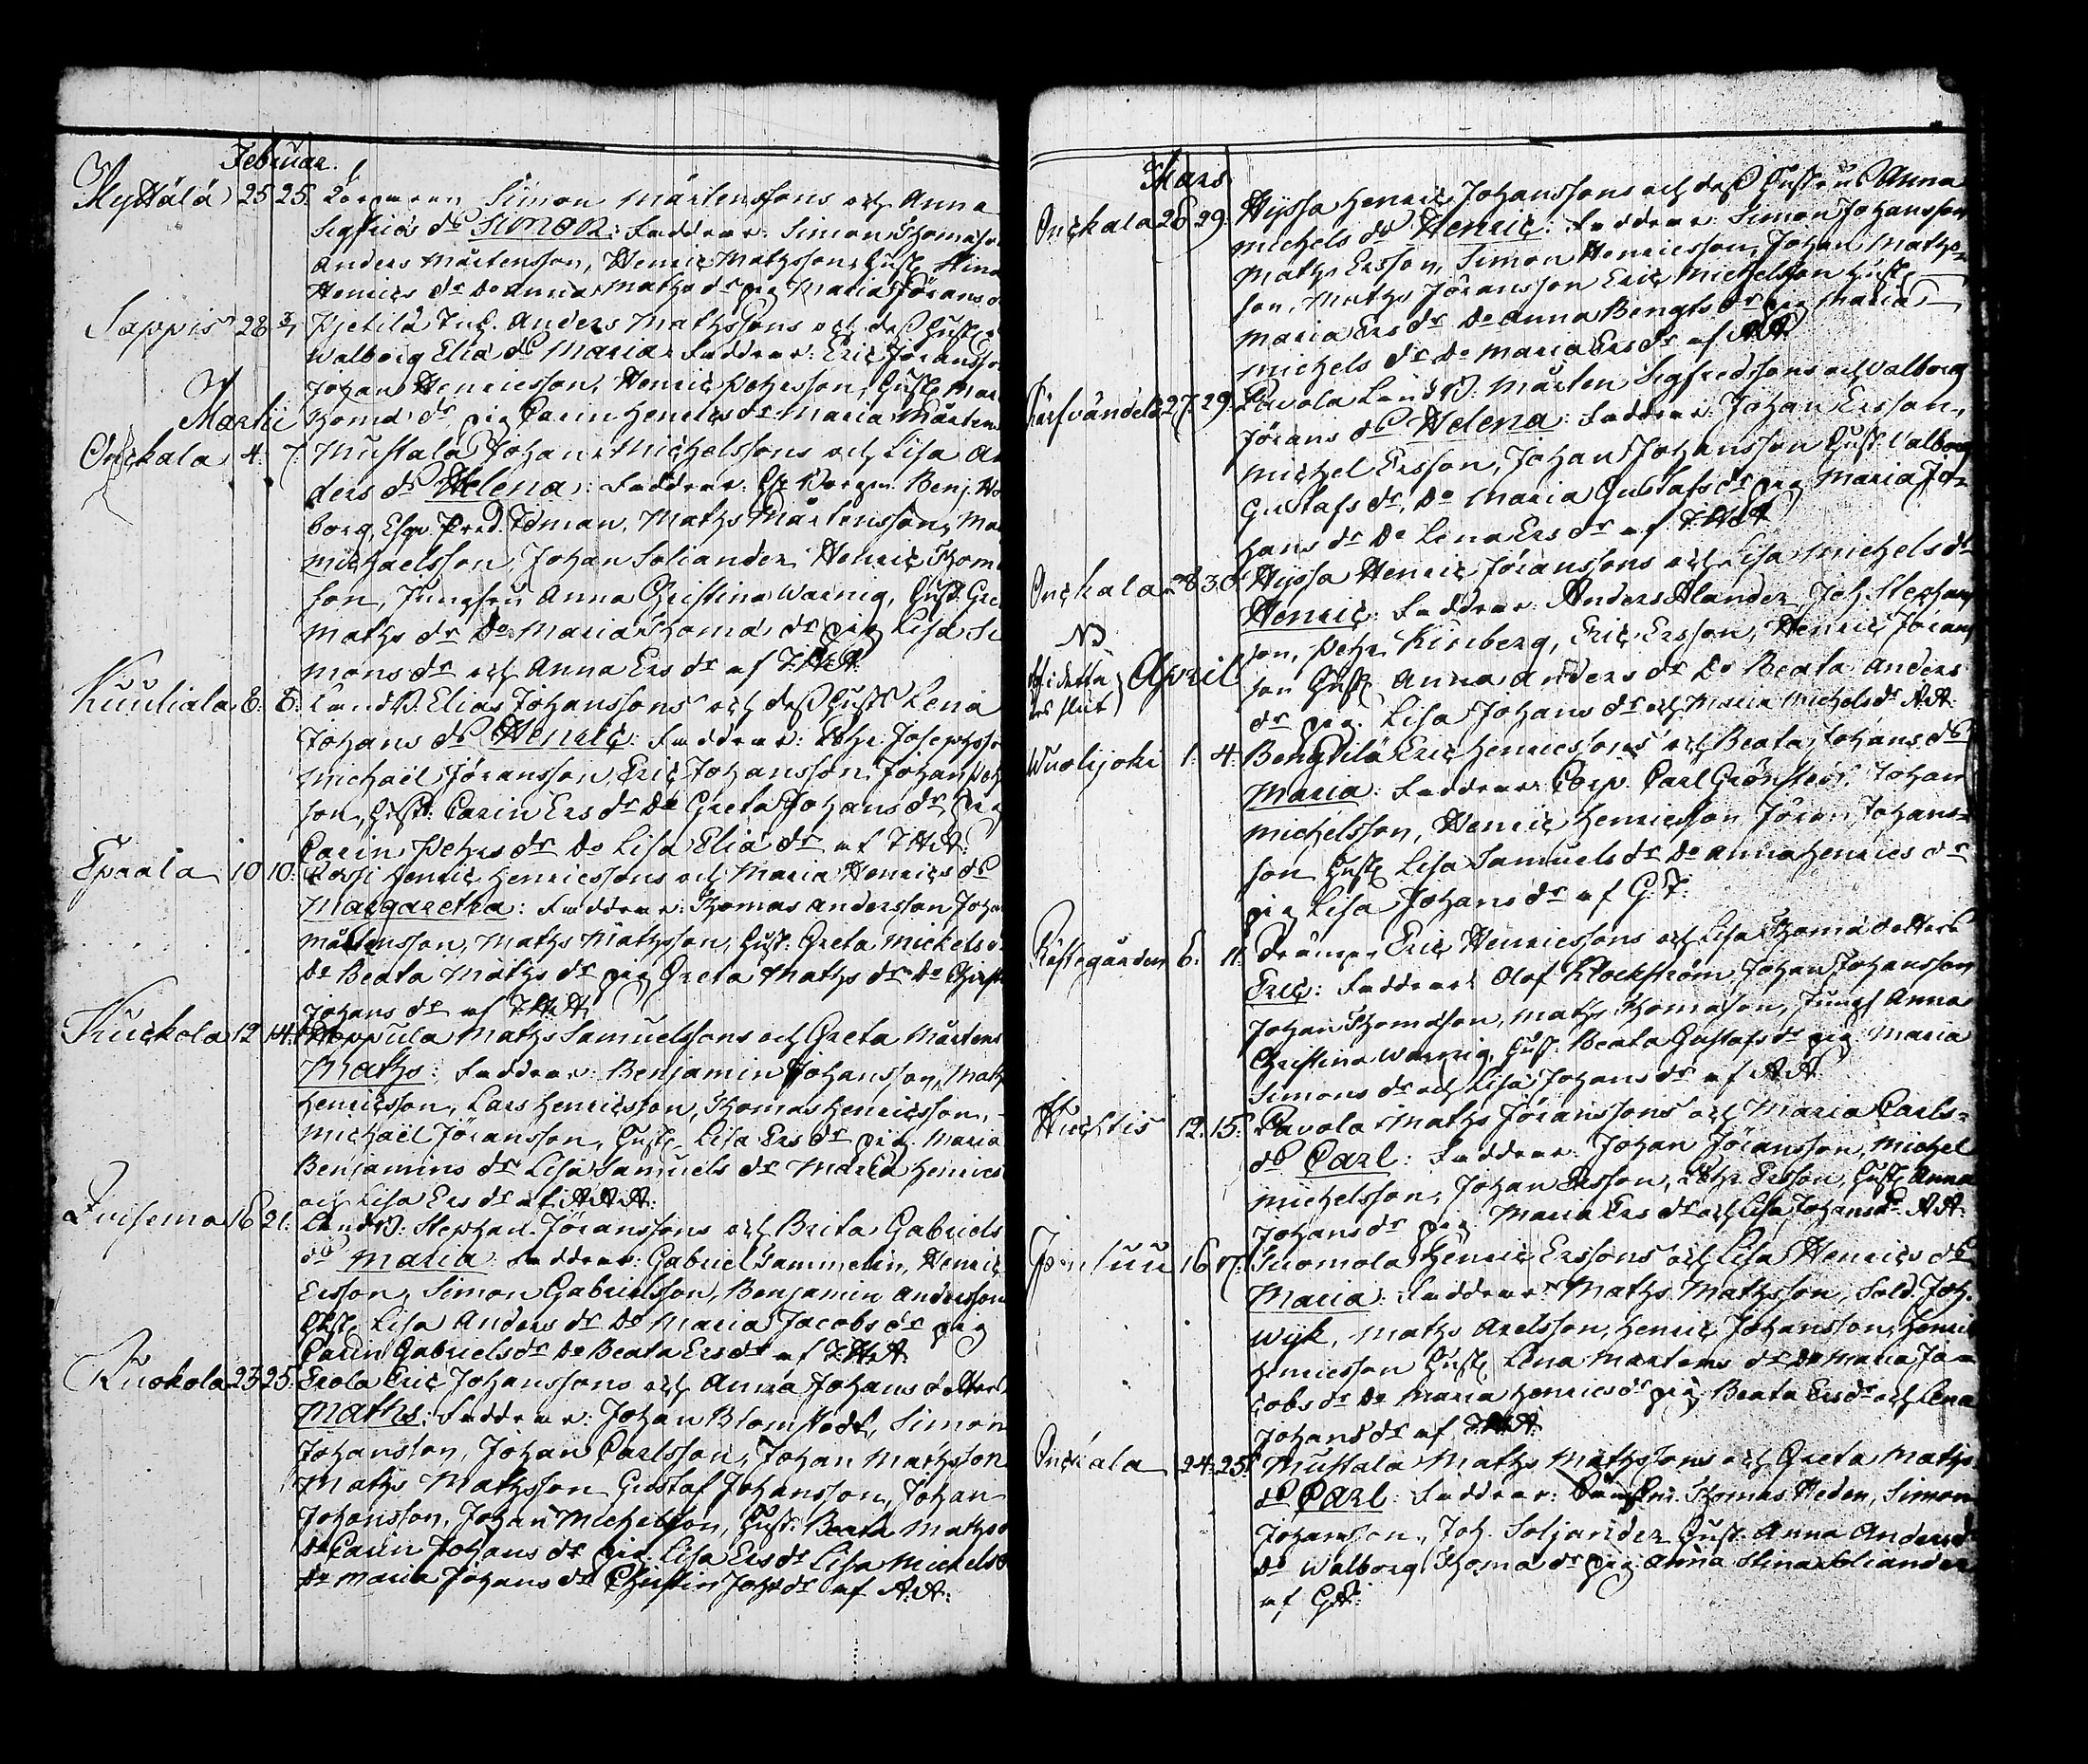 Februar.
Myttälä 25 25. Simon Mårtenssons och Anna
Sigfrids dr Simon: Faddrar: Simon Thomasson
Anders Mårtensson, Henric Mathsson, Hust. Stina
Henrics dr Do Anna Maths dr pig. Maria Jörans d
Sappis 28 Anders Mathssons och dess Hust.
Walborg Eliæ dr Maria Faddrar: Eric Jöransson
Johan Henricsson, Henric Pehrsson, Hust. Mar
Thomæ dr pig Carin Henrics dr Maria Mårtens
Martii
Onckala 4. 7. Mustala Johan Michelssons och Lisa An
ders dr Helena: Faddrar: Benj.
borg, Fred. Idman, Maths Mårtensson, Ma
Michaelsson, Johan Soliander, Henric Thom
son, Jungfru Anna Christina Warnig, Hust. Gre
Maths dr Do Maria Thomæ dr pig Lisa Si
mons dr och Anna Ers dr af
Kuuliala 8. 8. Landb. Elias Johanssons och dess Hust. Lena
Johans dr Henric: Faddrar: Pehr Josephsson
Michaël Jöransson, Eric Johansson, Johan Peh
son, Hust. Carin Ers dr Do Greta Johans dr pig
Carin Pehrs dr Do Lisa Eliæ dr af
Epaala 10 10. Henric Henricssons och Maria Henrics dr
Margaretha: Faddrar: Thomas Andersson Joha
Mårtensson, Maths Mathsson, Hust: Greta Mickels d
Do Beata Maths dr pig Greta Maths dr Do Christ
Johans dr af
Kuckola 12 14. Hoppula Maths Samuelssons och Greta Mårtens
Maths: Faddrar: Benjamin Johansson, Math
Henricsson, Lars Henricsson, Thomas Henricsson,
Michaël Jöransson, Hust. Lisa Ers dr pig. Maria
Benjamins dr Lisa Samuels dr Maria Henrics
och Lisa Ers dr af
16 21. Landb: Stephan Jöranssons och Brita Gabriels
dr Maria: Faddrar: Gabriel Sammelin, Henric
Ersson, Simon Gabrielsson, Benjamin Andersson
Hust. Lisa Anders dr Do Maria Jacobs dr pig
Carin Gabriels dr Do Beata Ers dr af
Kuokola 23 25. Erola Eric Johanssons och Anna Johans dotters
Maths: Faddrar: Johan Blomstedt, Simon
Johansson, Johan Carlsson, Johan Mathsson
Maths Mathsson Gustaf Johansson, Johan
Johansson, Johan Michelsson, Hust: Beata Maths d
Do Carin Johans dr pig Lisa Ers dr Lisa Michels d
Do Maria Johans dr Christin Joh. dr af A.A:
Mars
Onckala 26 29. Hyssa Henric Johanssons och dess Hustru Anna
Michels dr Henric: Faddrar: Simon Johansson
Maths Ersson, Simon Henricsson, Johan Maths-
son, Maths Jöransson Eric Michelsson Hust.
Maria Ers dr Do Anna Bengts dr pig Maria
Michels dr Do Maria Ers dr af A.A
27. 29. Pavola Landb. Mårten Sigfredssons och Valborg
Jörans dr Helena: Faddrar: Johan Ersson,
Michel Ersson, Johan Johansson Hust: Valborg
Gustafs dr, Do Maria Gustafs dr pig Maria Jo-
hans dr Do Lena Ers dr af
Onckala 28 30. Hyssa Henric Jöranssons och Lisa Michels dr
Henric: Faddrar: Anders Alander, Joh. Stephans
son, Pehr Kinberg, Eric Ersson, Henric Jörans
son Hust. Anna Anders dr Do Beata Anders
dr pig. Lisa Johans dr och Maria Michels dr A.A:
NB
April
Wuolijoki 1. 4. Bengtilä Eric Henricssons och Beata Johans dr
Maria: Faddrar: Corp. Carl Grönstedt, Johan
Michelsson, Henric Henricsson Jöran Johans-
son Hust. Lisa Samuels dr Do Anna Henrics dr
pig Lisa Johans dr af G.T:
6. 11. Eric Henricssons och Lisa Thomæ dotters
Eric: Faddrar: Olof Klockström Johan Johansson
Johan Thomasson, Maths Thomasson, Jungf Anna
Christina Warnig, Hust: Beata Gustafs dr pig Maria
Simons dr och Lisa Johans dr af A.A:
Huhtis 12. 15. Pavola Maths Jöranssons och Maria Carls-
dr Carl: Faddrar: Johan Jöransson, Michel
Michelsson, Johan Ersson, Pehr Ersson, Hust. Anna
Johans dr pig. Maria Ers dr och Lisa Johans dr A.A:
Jonsuu 16 17. Suomola Henric Erssons och Lisa Henrics dr
Maria: Faddrar Maths Mathsson, Sold. Joh.
Wijk, Maths Axelsson, Henric Johansson, Henric
Henricsson Hust. Lena Mårtens dr Do Maria Ja-
cobs dr Do Maria Henrics dr pig. Beata Ers dr och Lena
Johans dr af
Onckala 24. 25. Mustala Maths Mathssons och Greta Maths
dr Carl: Faddrar: Thomas Heden, Simon
Johansson, Joh. Soljander Hust. Anna Anders d
Do Walborg Thomæ dr pig Anna Stina Soliander
af